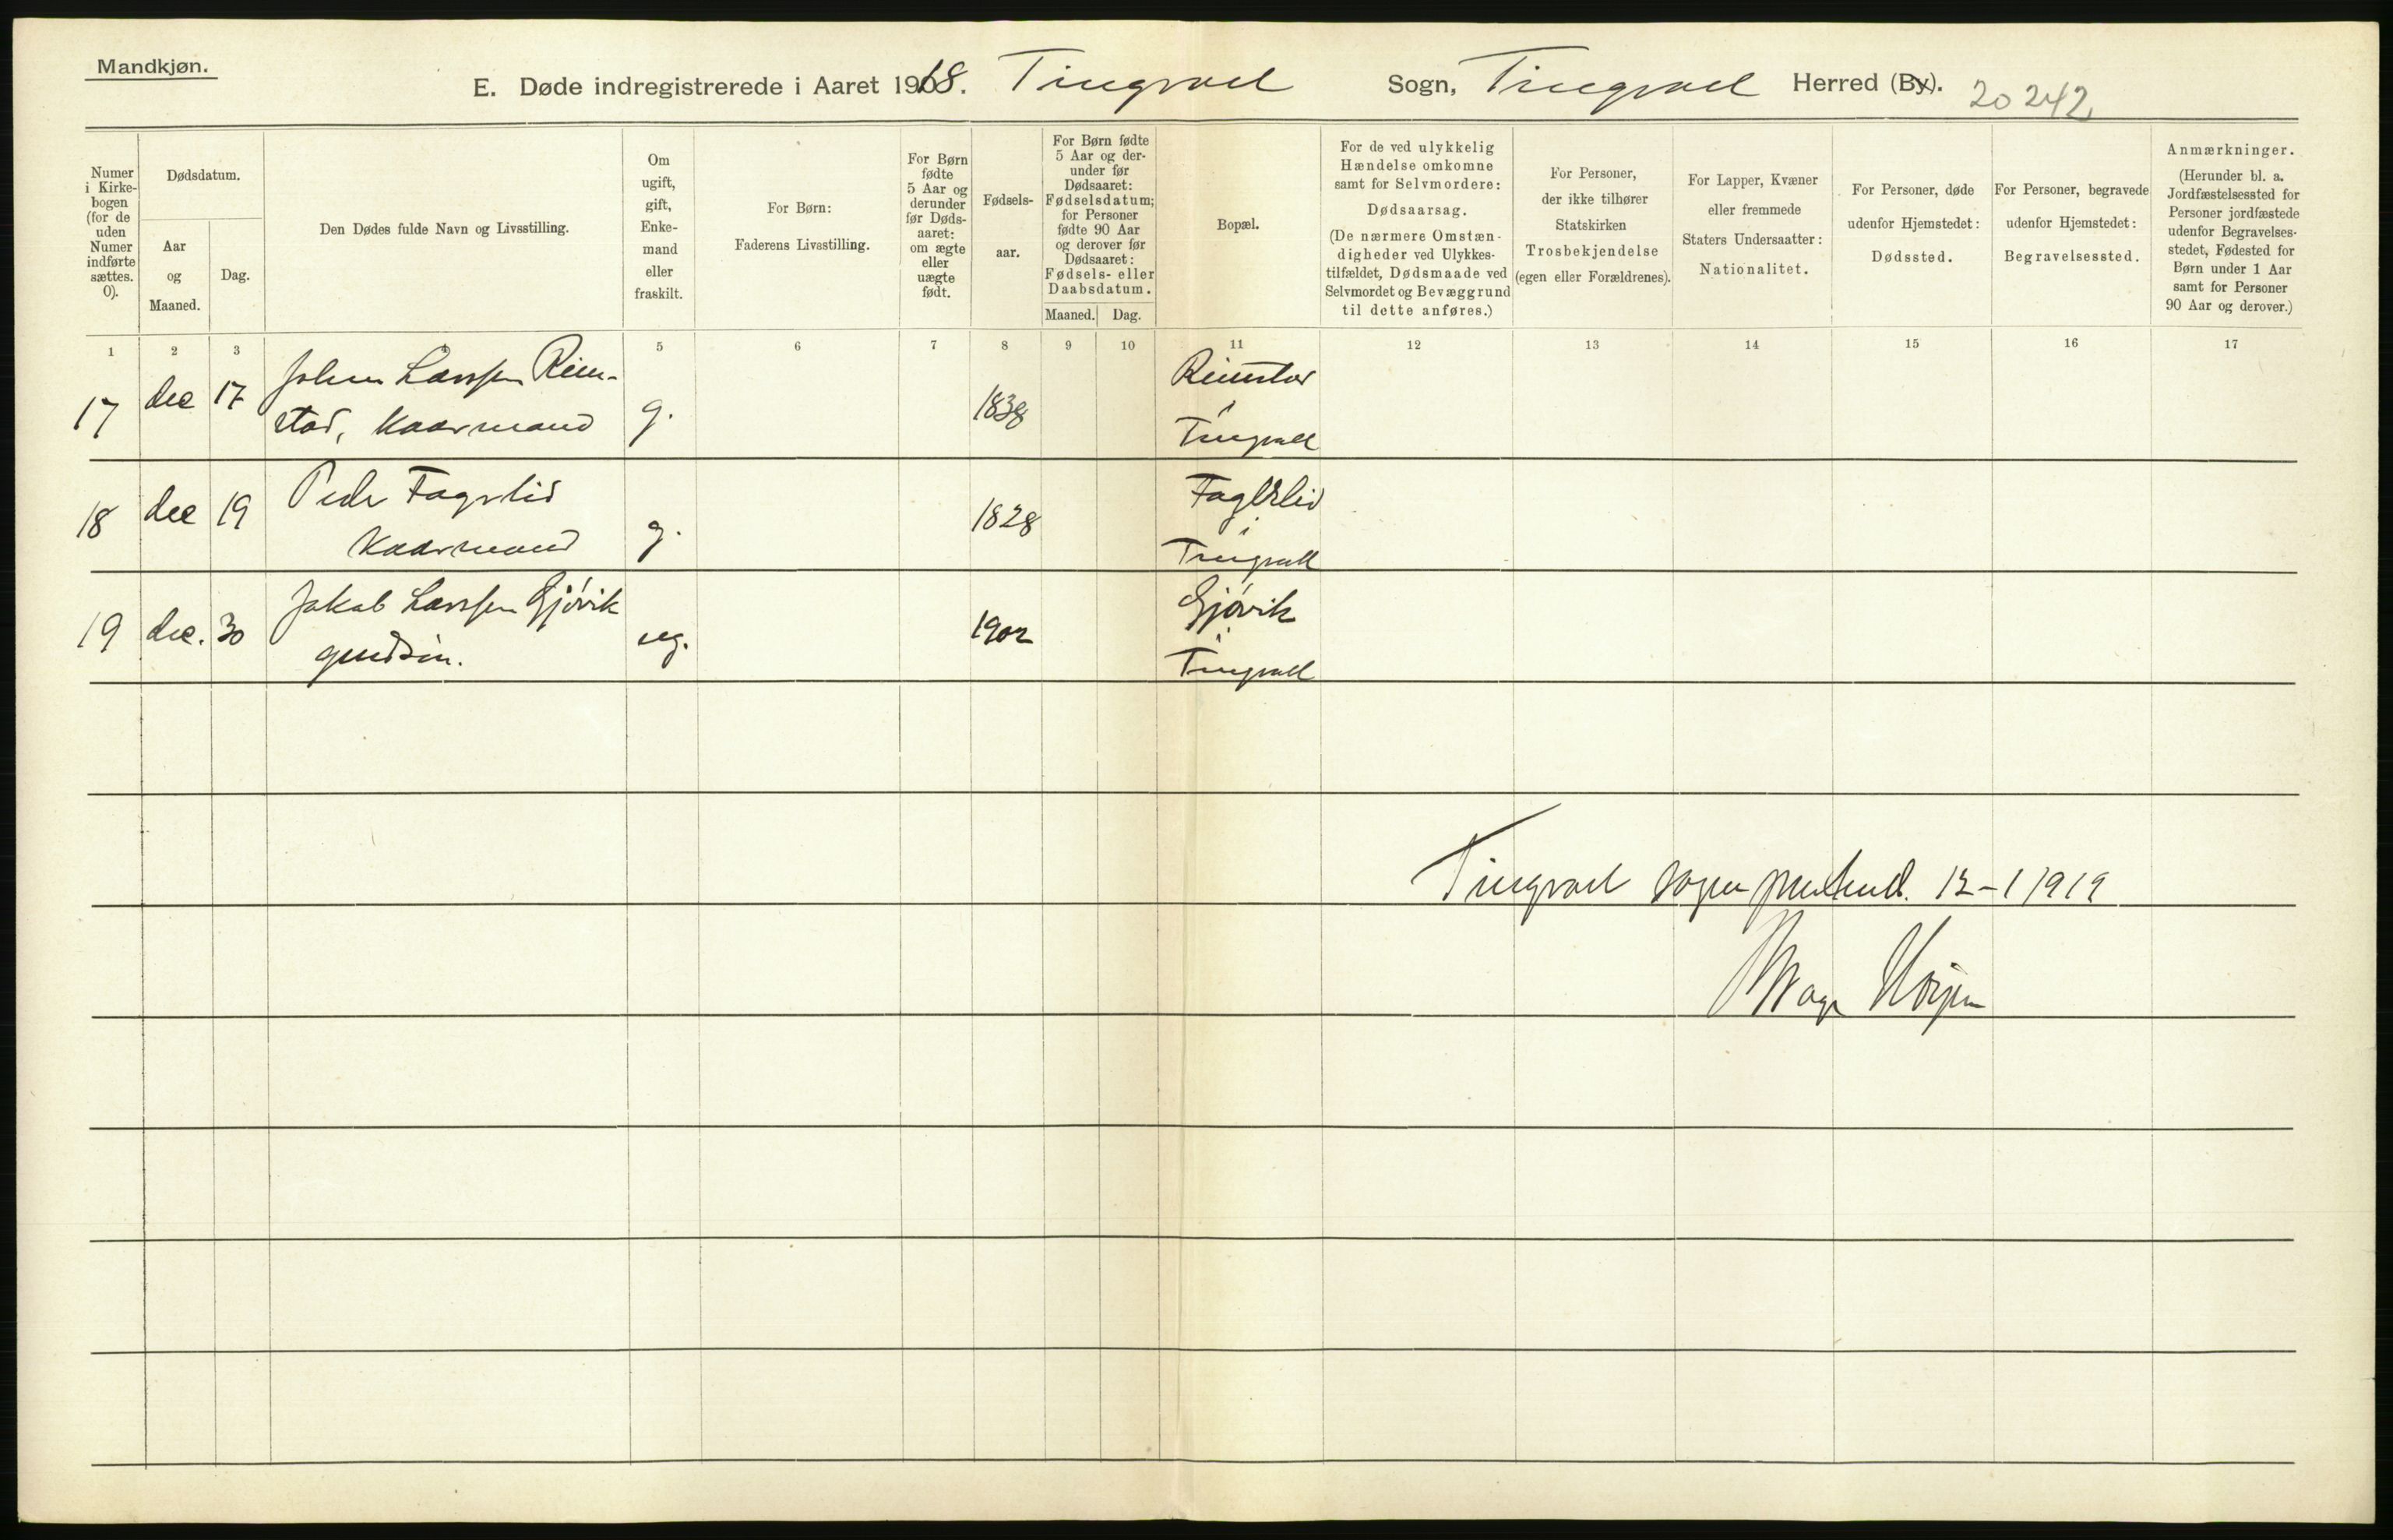 Mandkjøn.
E. Døde indregistrerede i Aaret 1918. Tingvoll Sogn, Tingvoll Herred (By). 20242
Numer i Kirke-bogen (for de uden Numer indførte sættes. 0).
Dødsdatum.
Aar og Maaned.
Dag.
Den Dødes fulde Navn og Livsstilling.
Om ugift, gift, Enke-mand eller fraskilt.
For Børn:
Faderens Livsstilling.
For Børn fødte 5 Aar og derunder før Døds-aaret: om ægte eller uægte født.
Fødsels-aar.
For Børn fødte 5 Aar og der-under før Dødsaaret: Fødselsdatum; for Personer fødte 90 Aar og derover før Dødsaaret: Fødsels- eller Daabsdatum.
Maaned. Dag.
Bopæl.
For de ved ulykkelig Hændelse omkomne samt for Selvmordere: Dødsaarsag. (De nærmere Omstæn-digheder ved Ulykkes-tilfældet, Dødsmaade ved Selvmordet og Bevæggrund til dette anføres.)
For Personer, der ikke tilhører Statskirken Trosbekjendelse (egen eller Forældrenes).
For Lapper, Kvæner eller fremmede Staters Undersaatter: Nationalitet.
For Personer, døde udenfor Hjemstedet: Dødssted.
For Personer, begravede udenfor Hjemstedet: Begravelsessted.
Anmærkninger. (Herunder bl. a. Jordfæstelsessted for Personer jordfæstede udenfor Begravelses-stedet, Fødested for Børn under 1 Aar samt for Personer 90 Aar og derover.)
1 2 3 5 6 7 8 9 10 11 12 13 14 15 16 17
17 dec 17 John Larssen Reim- g. 1838 Reimstad
stad, Kaarmand i Tingvoll
18 dec 19 Peder Fagerlid g. 1828 Fagerlid
Kaarmand i Tingvoll
19 dec. 30 Jakob Larssen Gjøvik ug. 1902 Gjøvik
i Tingvoll
Tingvoll sogneprestemb. 13-1 1919